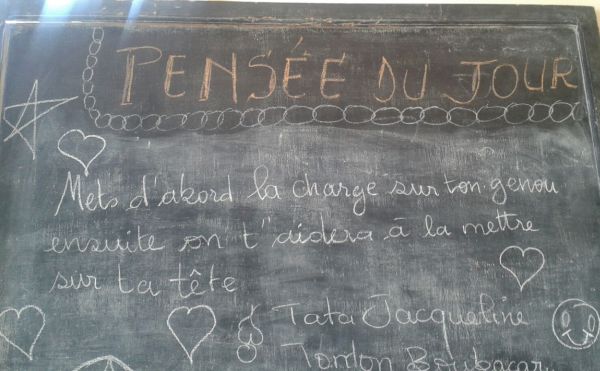 PENSÉE DU JOUR
Mets d'abord la charge sur ton génou
ensuite on t'aidera à la mettre
sur ta tête
Tata Jacqueline
Tonton Boubacar